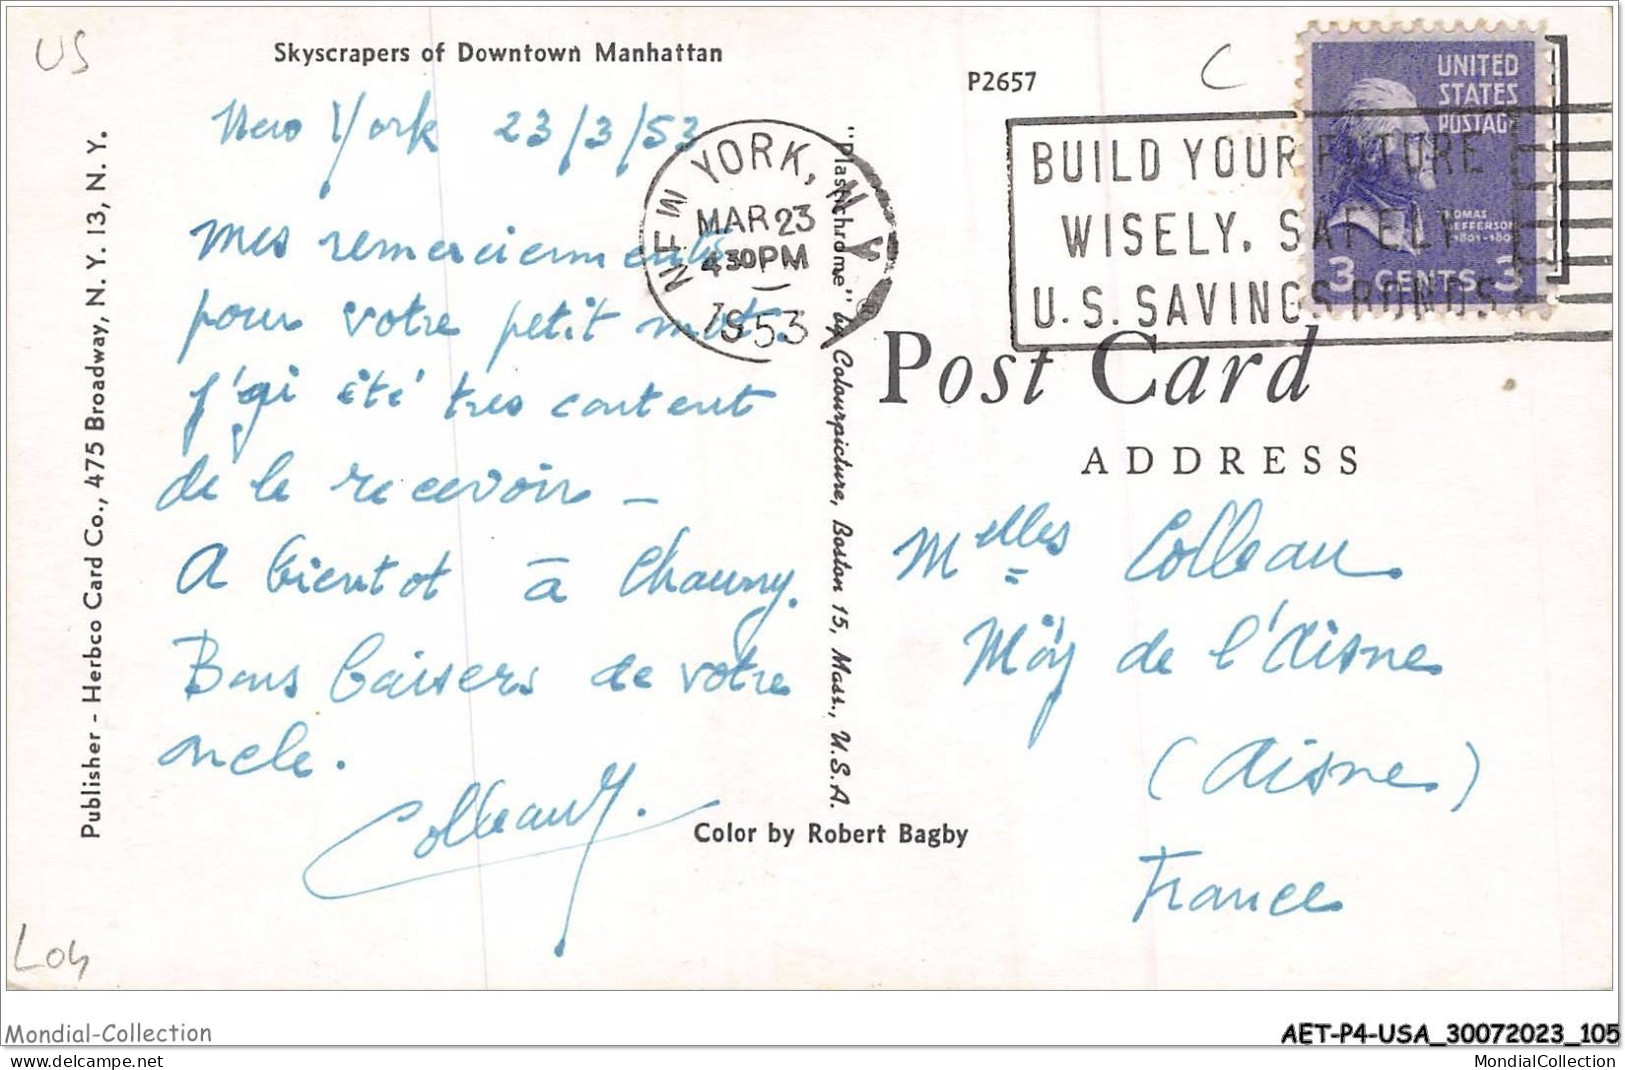 US
Skyscrapers of Downtown Manhattan
New York 23/3/53
mes remerciements
pour votre petit mot.
j'ai été très content
de le recevoir –
A bientot à Chauny.
Bons baisers de votre
oncle.
Colleau
Publisher - Herbco Card Co., 475 Broadway, N. Y. 13, N. Y.
L04
NEW YORK, N.Y.
MAR 23
4 30 PM
1953
"Plastichrome" by Colourpicture, Boston 15, Mass., U.S.A.
Color by Robert Bagby
P2657
C
BUILD YOUR FUTURE
WISELY, SAFELY
U.S. SAVINGS BONDS
UNITED
STATES
POSTAGE
THOMAS
JEFFERSON
3 CENTS 3
Post Card
ADDRESS
Melles Colleau
Möy de l'Aisne
(Aisne)
France
Mondial-Collection
AET-P4-USA_30072023_105
www.delcampe.net
MondialCollection